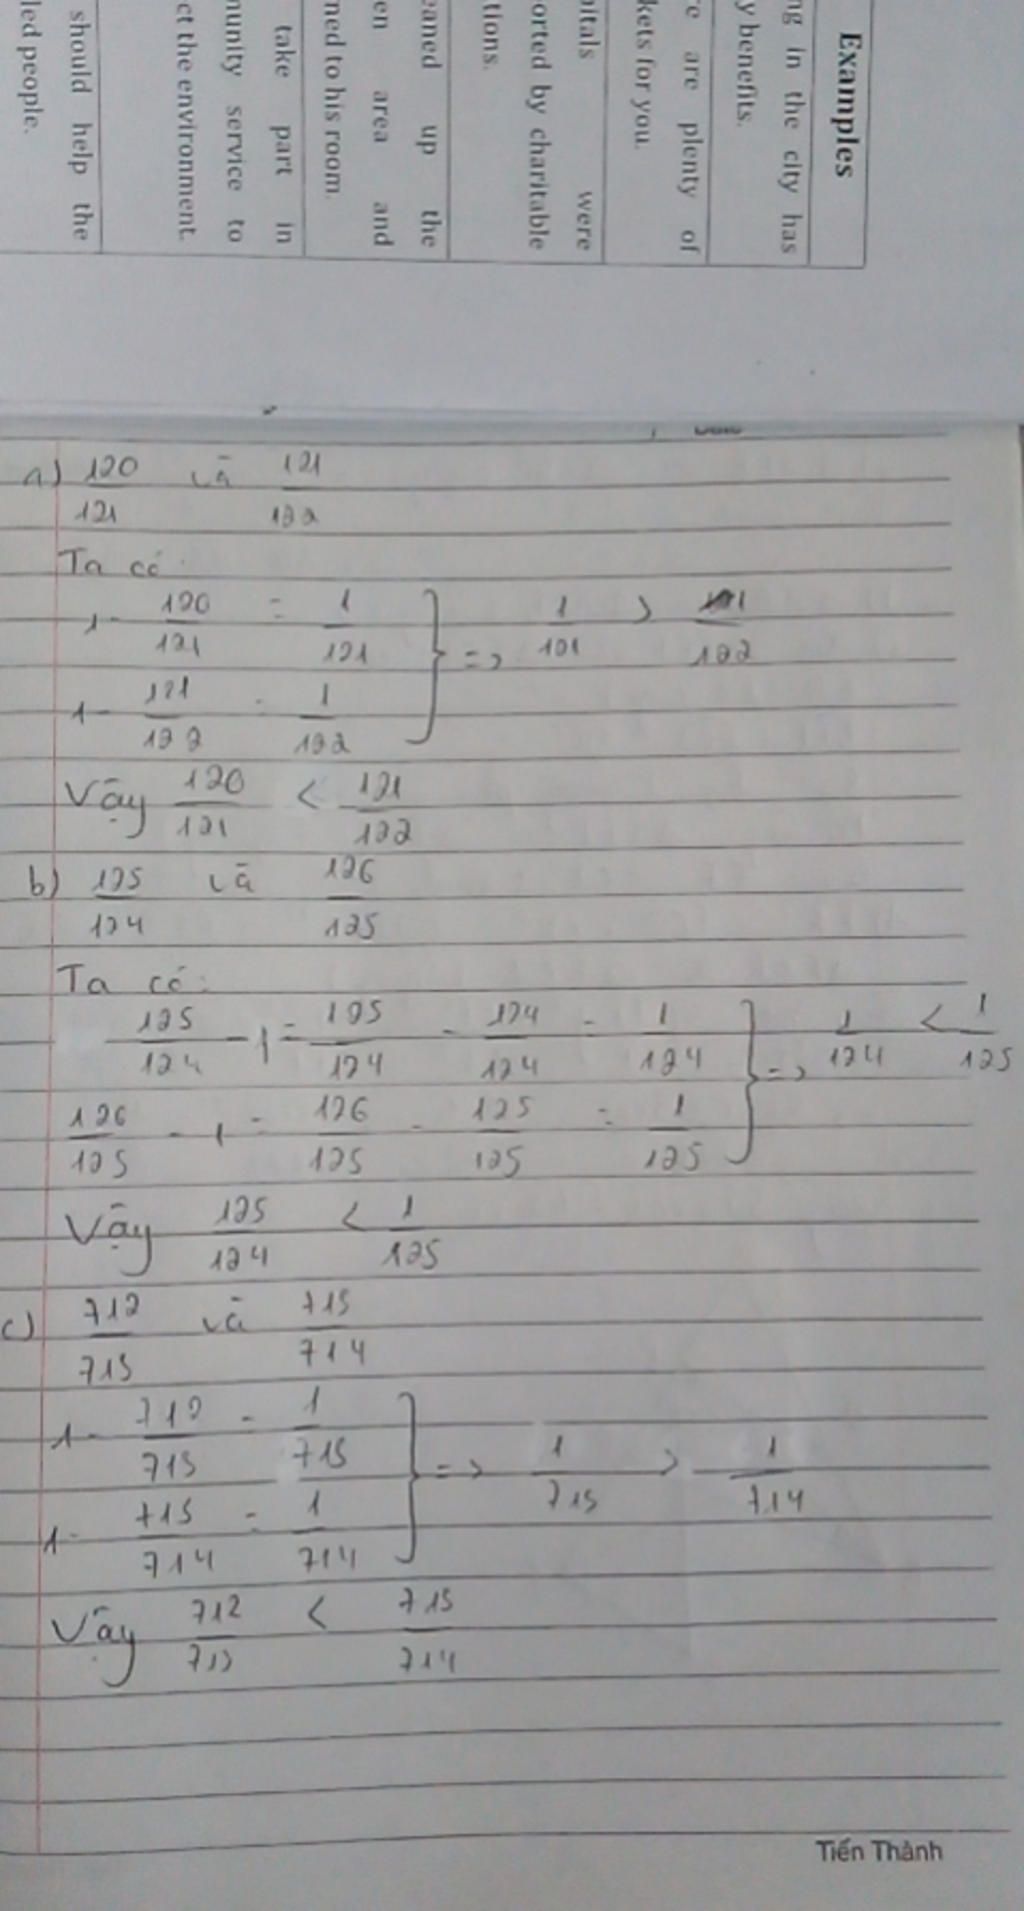 Examples
ng in the city has
y benefits.
re are plenty of
kets for you.
pitals were
orted by charitable
tions.
eaned up the
en area and
ned to his room.
take part in
munity service to
ct the environment.
should help the
led people.
a) 120/121 và 121/122
Ta có:
1 - 120/121 = 1/121
1 - 121/122 = 1/122
} => 1/121 > 1/122
Vậy 120/121 < 121/122
b) 125/124 và 126/125
Ta có:
125/124 - 1 = 125/124 - 124/124 = 1/124
126/125 - 1 = 126/125 - 125/125 = 1/125
} => 1/124 < 1/125
Vậy 125/124 < 1/125
c) 712/713 và 713/714
1 - 712/713 = 1/713
1 - 713/714 = 1/714
} => 1/713 > 1/714
Vậy 712/713 < 713/714
Tiến Thành